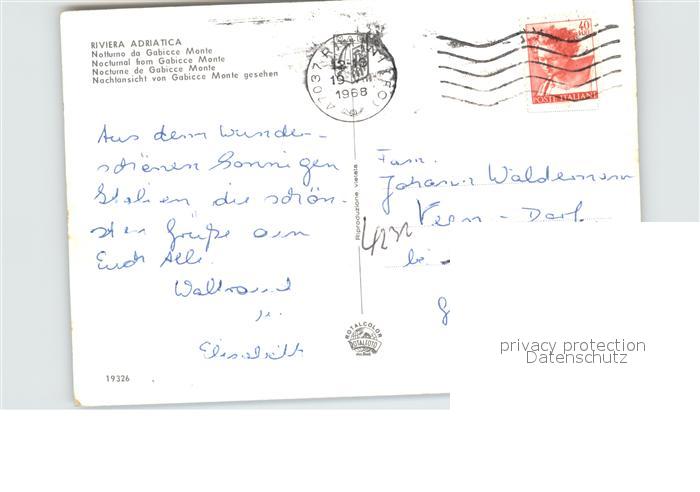 RIVIERA ADRIATICA
Notturno da Gabicce Monte
Nocturnal from Gabicce Monte
Nocturne de Gabicce Monte
Nachtansicht von Gabicce Monte gesehen
40
POSTE ITALIANE
47037 RIMINI (FO)
19
1968
Aus dem wunder-
schönen Sonnigen
Italien die schön-
sten Grüße an
Euch Alle.
Waltraud
u.
Elisabeth
Fam.
Johann Waldemann
Veen - Dorf
4232
bei
Riproduzione vietata
ROTALCOLOR
ROTALFOTO
19326
privacy protection
Datenschutz